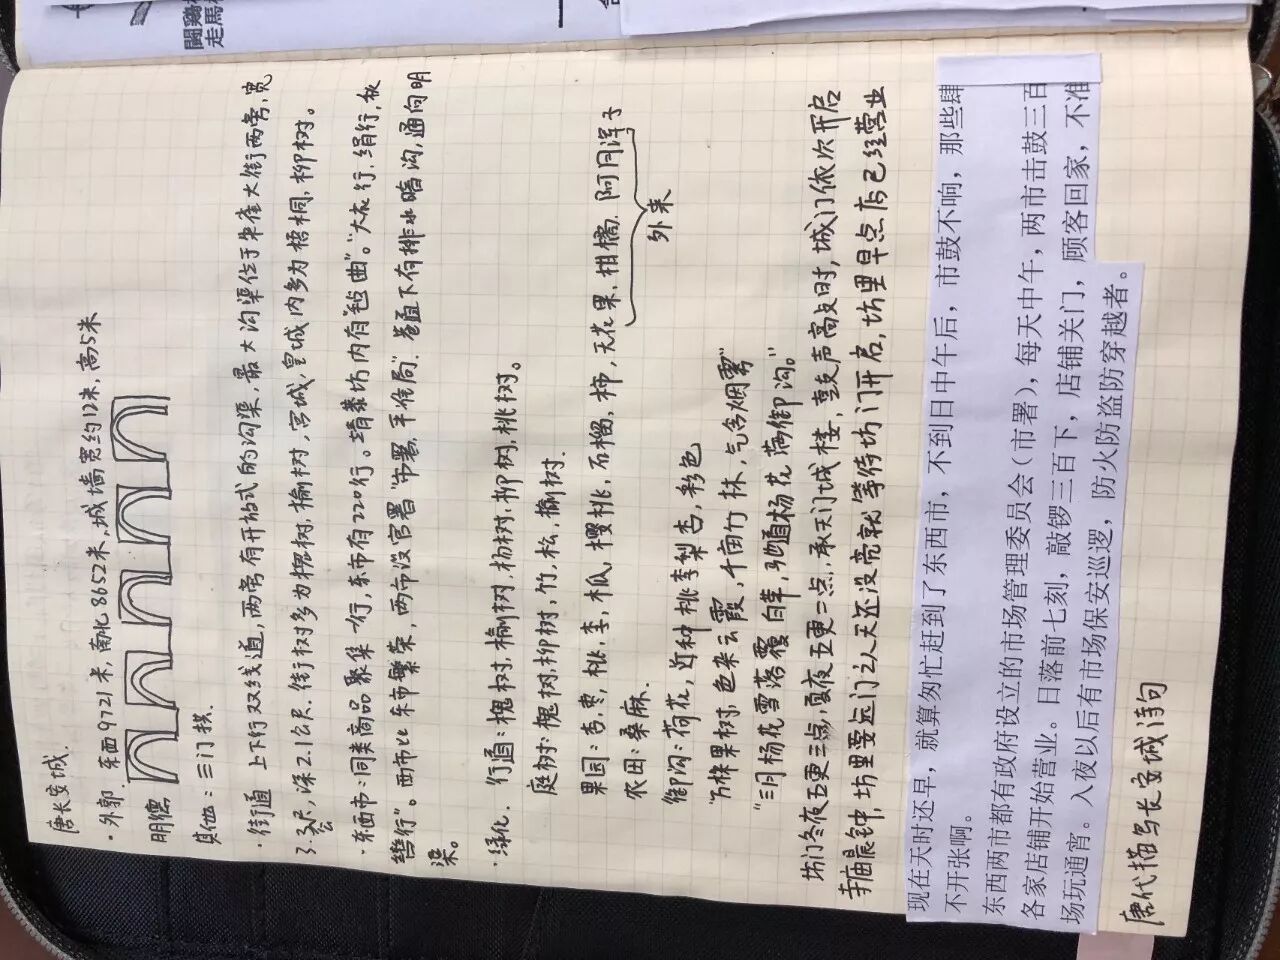 鬪鷄
走馬
唐长安城.
·外郭. 东西9721米,南北8652米,城墙宽约12米,高5米
明德
其他:三门拱.
·街道 上下行双线道,两旁有开放式的沟渠,最大沟渠位于朱雀大街两旁,宽
3.3尺,深2.1公尺.街树多为槐树.榆树,宫城,皇城内多为梧桐,柳树。
·东西市:同类商品聚集一行,东市有220行。靖恭坊内有"毡曲"。"大衣行,绢行,秋
辔行"。西市比东市繁荣,两市设官署"市署,平准局".巷直下有排水暗沟,通向明
渠。
·绿化. 行道:槐树,榆树,杨树,柳树,桃树。
庭树:槐树,柳树,竹,松,榆树.
果园:杏,枣,桃.李,木瓜,樱桃,石榴,柿,无花果.柑橘.阿月浑子
外来
农田:桑麻.
御沟:荷花,近种桃李梨杏,彩色
"万株果树,色杂云霞,千亩竹林,气含烟雾"
"三月杨花雪落覆白苹,驰道杨花满御沟。"
坊门冬夜五更三点,夏夜五更二点,承天门城楼,鼓声高文时,城门依次开启
寺庙晨钟,坊里要远门之人天还没亮就等待坊门开启,坊里早点店已经营业
现在天时还早,就算匆忙赶到了东西市,不到日中午后,市鼓不响,那些肆
不开张啊。
东西两市都有政府设立的市场管理委员会(市署),每天中午,两市击鼓三百
各家店铺开始营业。日落前七刻,敲锣三百下,店铺关门,顾客回家,不准
场玩通宵。入夜以后有市场保安巡逻,防火防盗防穿越者。
唐代描写长安城诗句